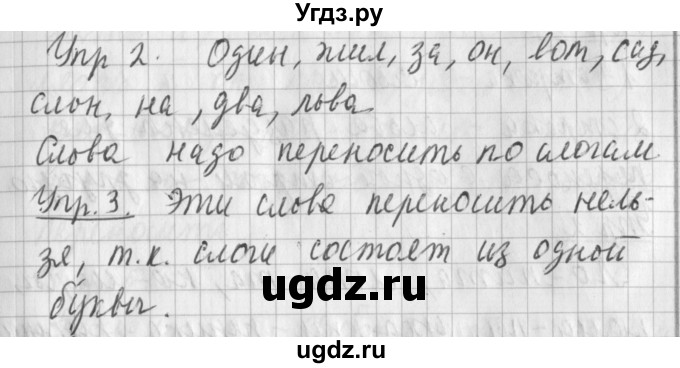 Угдз.ру
Упр 2. Один, жил, за, он, вот, сад,
слон, на, два, льва
Слова надо переносить по слогам
Упр. 3. Эти слова переносить нель-
зя, т.к. слоги состоят из одной
буквы.
ugdz.ru
ugdz.ru